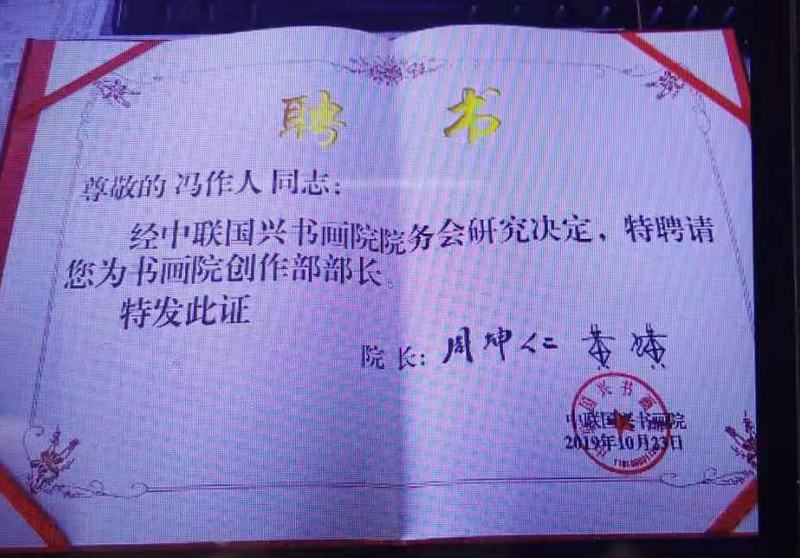 聘书
尊敬的 冯作人 同志：
经中联国兴书画院院务会研究决定，特聘请
您为书画院创作部部长。
特发此证
院长：周坤仁 黄
中联国兴书画院
2019年10月23日